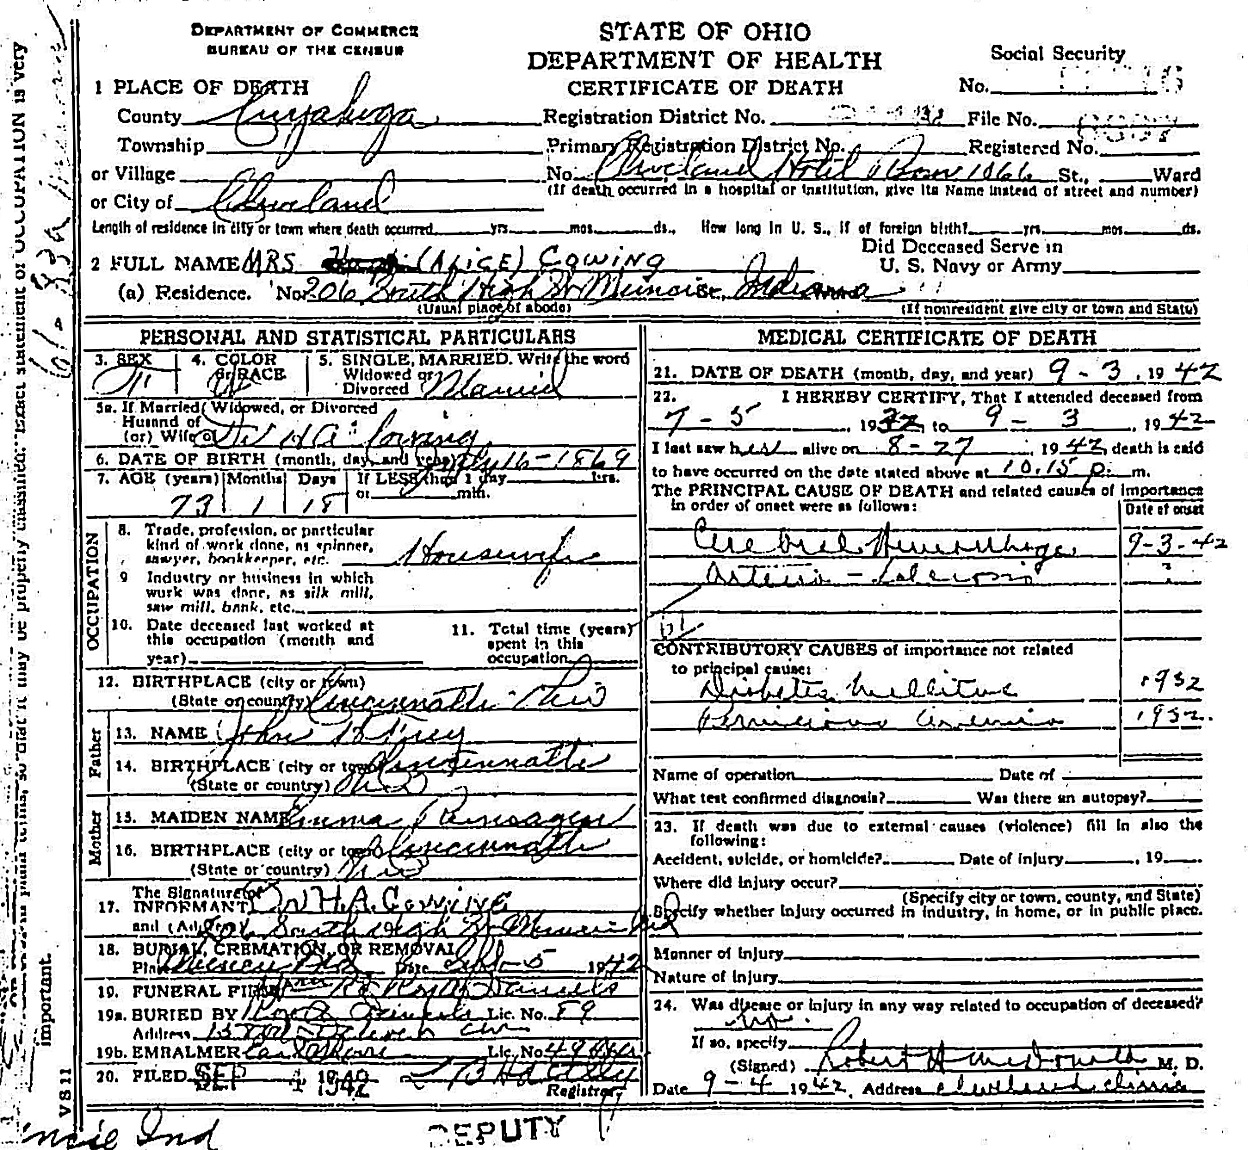 DEPARTMENT OF COMMERCE
BUREAU OF THE CENSUS
STATE OF OHIO
DEPARTMENT OF HEALTH
CERTIFICATE OF DEATH
Social Security
No.
1 PLACE OF DEATH
County Cuyahoga
Registration District No. File No.
Township
Primary Registration District No. Registered No.
or Village
No. Cleveland Hotel Room 1066 St., Ward
(If death occurred in a hospital or institution, give its Name instead of street and number)
or City of Cleveland
Length of residence in city or town where death occurred yrs mos. ds. How long in U. S., if of foreign birth? yrs. mos. ds.
Did Deceased Serve in
U. S. Navy or Army
2 FULL NAME MRS (ALICE) COWING
(a) Residence. No. 206 South High St Muncie, Indiana
(Usual place of abode) (If nonresident give city or town and State)
PERSONAL AND STATISTICAL PARTICULARS
3. SEX F
4. COLOR or RACE W
5. SINGLE, MARRIED. Write the word
Widowed or
Divorced Married
5a. If Married, Widowed, or Divorced
Husband of
(or) Wife of Dr H A Cowing
6. DATE OF BIRTH (month, day, and year) July 16-1869
7. AGE (years) Months Days If LESS than 1 day hrs.
or min.
73 1 18
OCCUPATION
8. Trade, profession, or particular
kind of work done, as spinner,
sawyer, bookkeeper, etc. Housewife
9 Industry or business in which
work was done, as silk mill,
saw mill, bank, etc.
10. Date deceased last worked at
this occupation (month and
year)
11. Total time (years)
spent in this
occupation
12. BIRTHPLACE (city or town)
(State or country) Cincinnatti Ohio
Father
13. NAME John
14. BIRTHPLACE (city or town) Cincinnatti
(State or country) Ohio
Mother
15. MAIDEN NAME Emma
16. BIRTHPLACE (city or town) Cincinnatti
(State or country) Ohio
The Signature of
17. INFORMANT Dr H.A. COWING
and (Address) 206 South High St Muncie Ind
18. BURIAL, CREMATION, OR REMOVAL
Place Muncie Ind Date Sept-5 1942
19. FUNERAL FIRM
19a. BURIED BY Lic. No. 89
Address
19b. EMBALMER Lic. No.
20. FILED SEP 4 1942
Registrar
DEPUTY
MEDICAL CERTIFICATE OF DEATH
21. DATE OF DEATH (month, day, and year) 9-3, 1942
22. I HEREBY CERTIFY, That I attended deceased from
7-5, 1932, to 9-3, 1942
I last saw her alive on 8-27, 1942, death is said
to have occurred on the date stated above at 10.15 p. m.
The PRINCIPAL CAUSE OF DEATH and related causes of importance
in order of onset were as follows:
Date of onset
Cerebral Hemorrhage 9-3-42
Arterio-Sclerosis ?
CONTRIBUTORY CAUSES of importance not related
to principal cause:
Diabetes Mellitus 1932
Pernicious Anemia 1932.
Name of operation Date of
What test confirmed diagnosis? Was there an autopsy?
23. If death was due to external causes (violence) fill in also the
following:
Accident, suicide, or homicide? Date of injury, 19
Where did injury occur?
(Specify city or town, county, and State)
Specify whether injury occurred in industry, in home, or in public place.
Manner of injury
Nature of injury
24. Was disease or injury in any way related to occupation of deceased?
no.
If so, specify
(Signed) Robert H McDonald M. D.
Date 9-4 1942, Address Cleveland Clinic
important.
VS 11
Ind